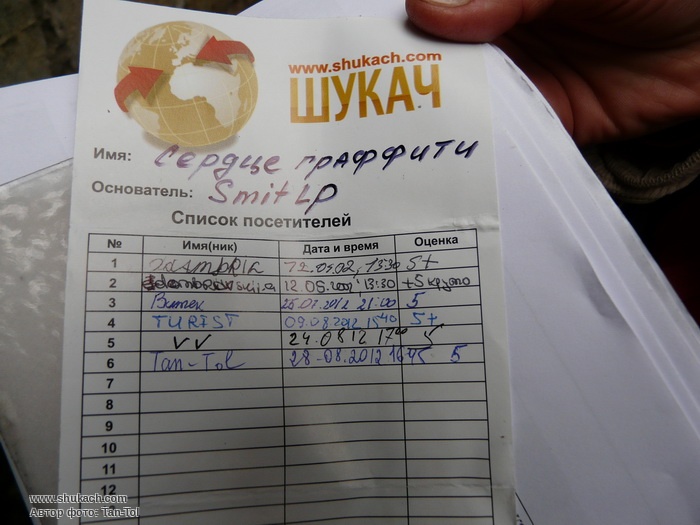 www.shukach.com
ШУКАЧ
Имя: Сердце граффити
Основатель: Smit LP
Список посетителей
№ Имя(ник) Дата и время Оценка
1 13:30 5+
2 12.05. 13:30 +5 круто
3 Витек 21:00 5
4 TURIST 09.08 2012 15 40 5+
5 VV 24.08 12 17 00 5
6 Tan-Tol 28-08.2012 16 45 5
7
8
9
10
11
12
www.shukach.com
Автор фото: Tan-Tol